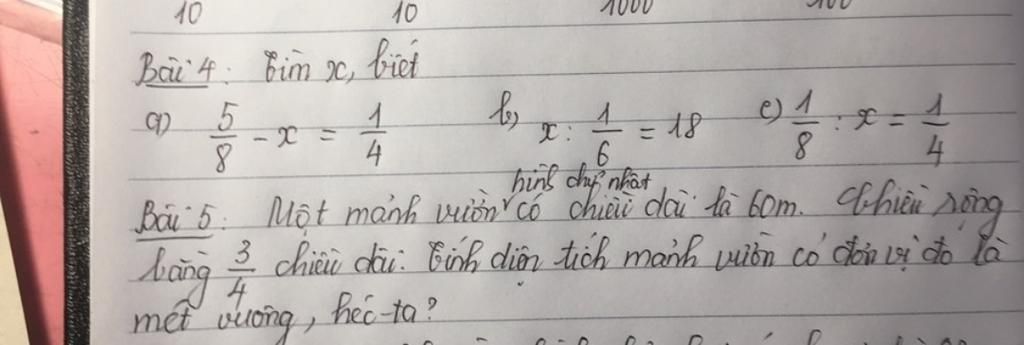 10 10 1000 100
Bài 4: Tìm x, biết
a) 5/8 - x = 1/4 b) x : 1/6 = 18 c) 1/8 : x = 1/4
hình chữ nhật
Bài 5: Một mảnh vườn có chiều dài là 60m. Chiều rộng
bằng 3/4 chiều dài. Tính diện tích mảnh vườn có đơn vị đo là
mét vuông, héc-ta?